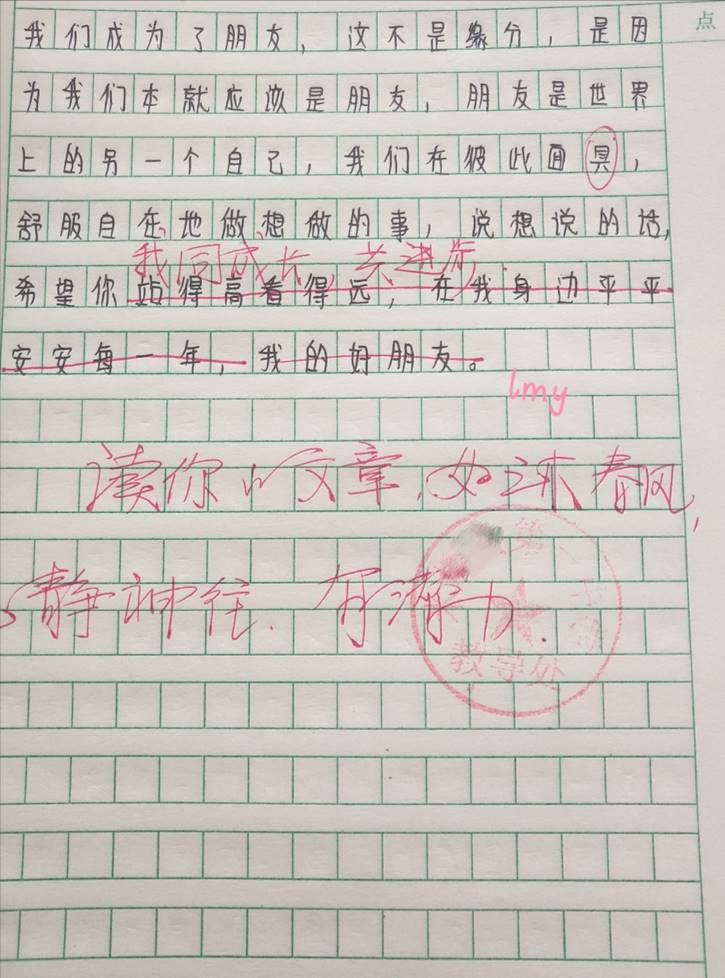 点
我们成为了朋友，这不是缘分，是因
为我们本就应该是朋友，朋友是世界
上的另一个自己，我们在彼此面具，
舒服自在地做想做的事，说想说的话，
我同成长，共进步.
希望你站得高看得远，在我身边平平
安安每一年，我的好朋友。
lmy
读你的文章，如沐春风，
静神往.有潜力.
第
教导处